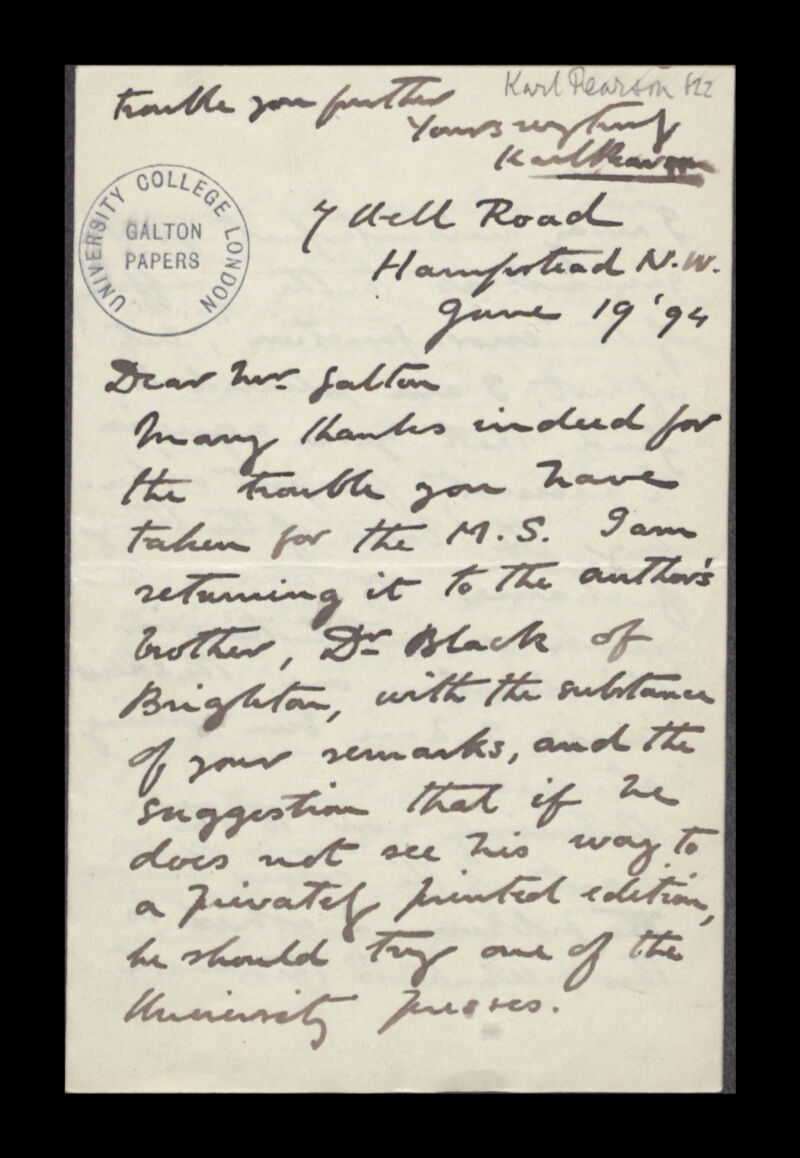 Karl Pearson 822
trouble you further
Yours very truly
Karl Pearson
UNIVERSITY COLLEGE LONDON
GALTON
PAPERS
7 Well Road
Hampstead N.W.
June 19 '94
Dear Mr. Galton
Many thanks indeed for
the trouble you have
taken for the M.S. I am
returning it to the author's
brother, Dr Black of
Brighton, with the substance
of your remarks, and the
suggestion that if he
does not see his way to
a privately printed edition,
he should try one of the
University presses.